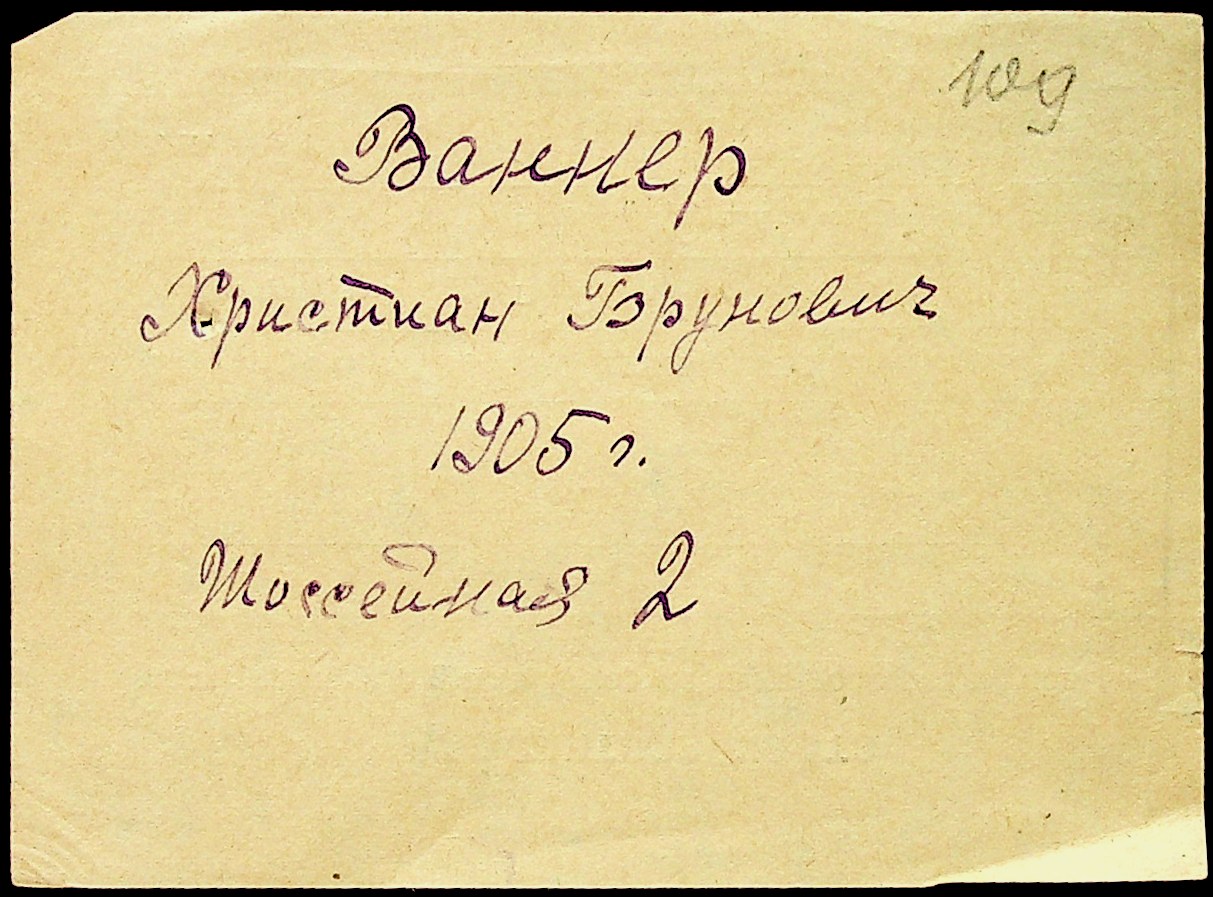 109
Ваннер
Христиан Бэрунович
1905 г.
Шоссейная 2